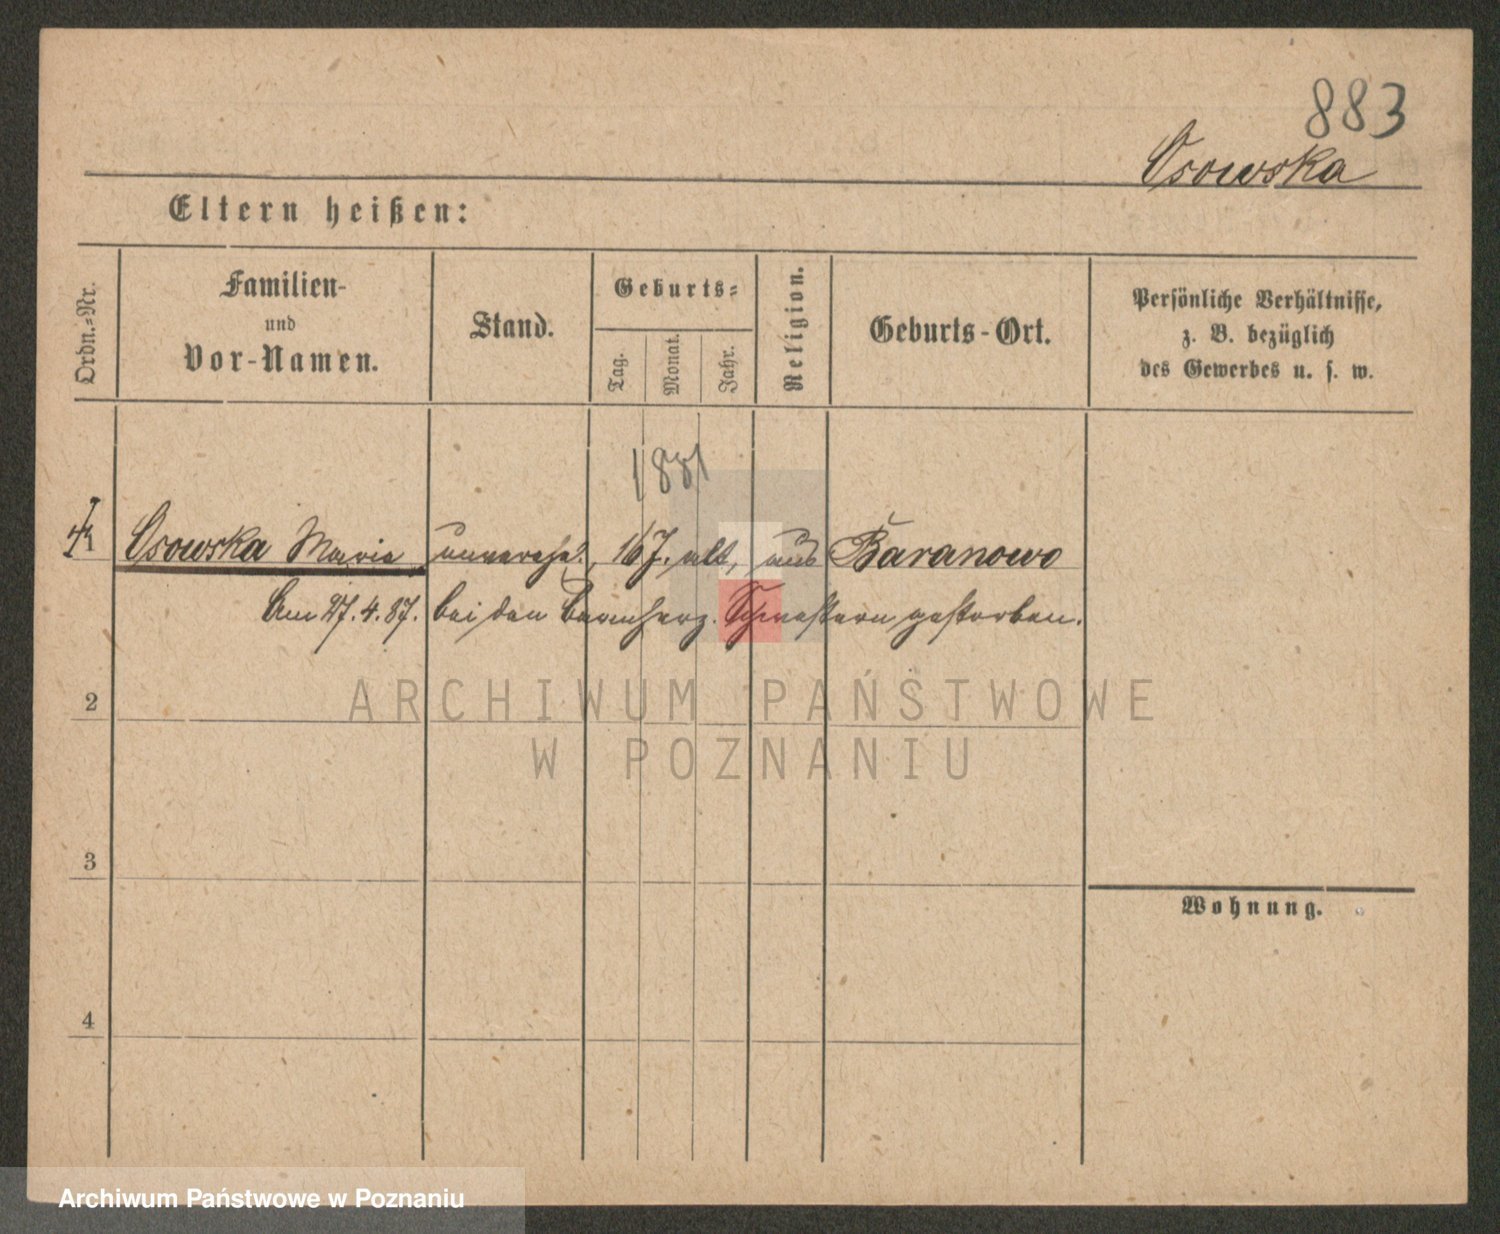 883
Osowska
Eltern heißen:
Ordn.-Nr.
Familien-
und
Vor-Namen.
Stand.
Geburts-
Tag.
Monat.
Jahr.
Religion.
Geburts-Ort.
Persönliche Verhältnisse,
z. B. bezüglich
des Gewerbes u. s. w.
1881
1 Osowska Maria unverehel., 16 J. alt, aus Baranowo
Am 27.4.87. bei den barmherz. Schwestern gestorben.
2
ARCHIWUM PAŃSTWOWE
W POZNANIU
3
Wohnung.
4
Archiwum Państwowe w Poznaniu